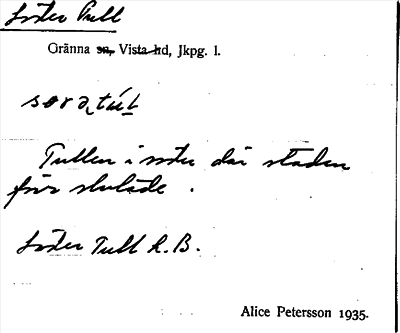 Söder Tull
Gränna sn, Vista hd, Jkpg. l.
Tullen i söder där staden
förr slutade .
Söder Tull R.B.
Alice Petersson 1935.